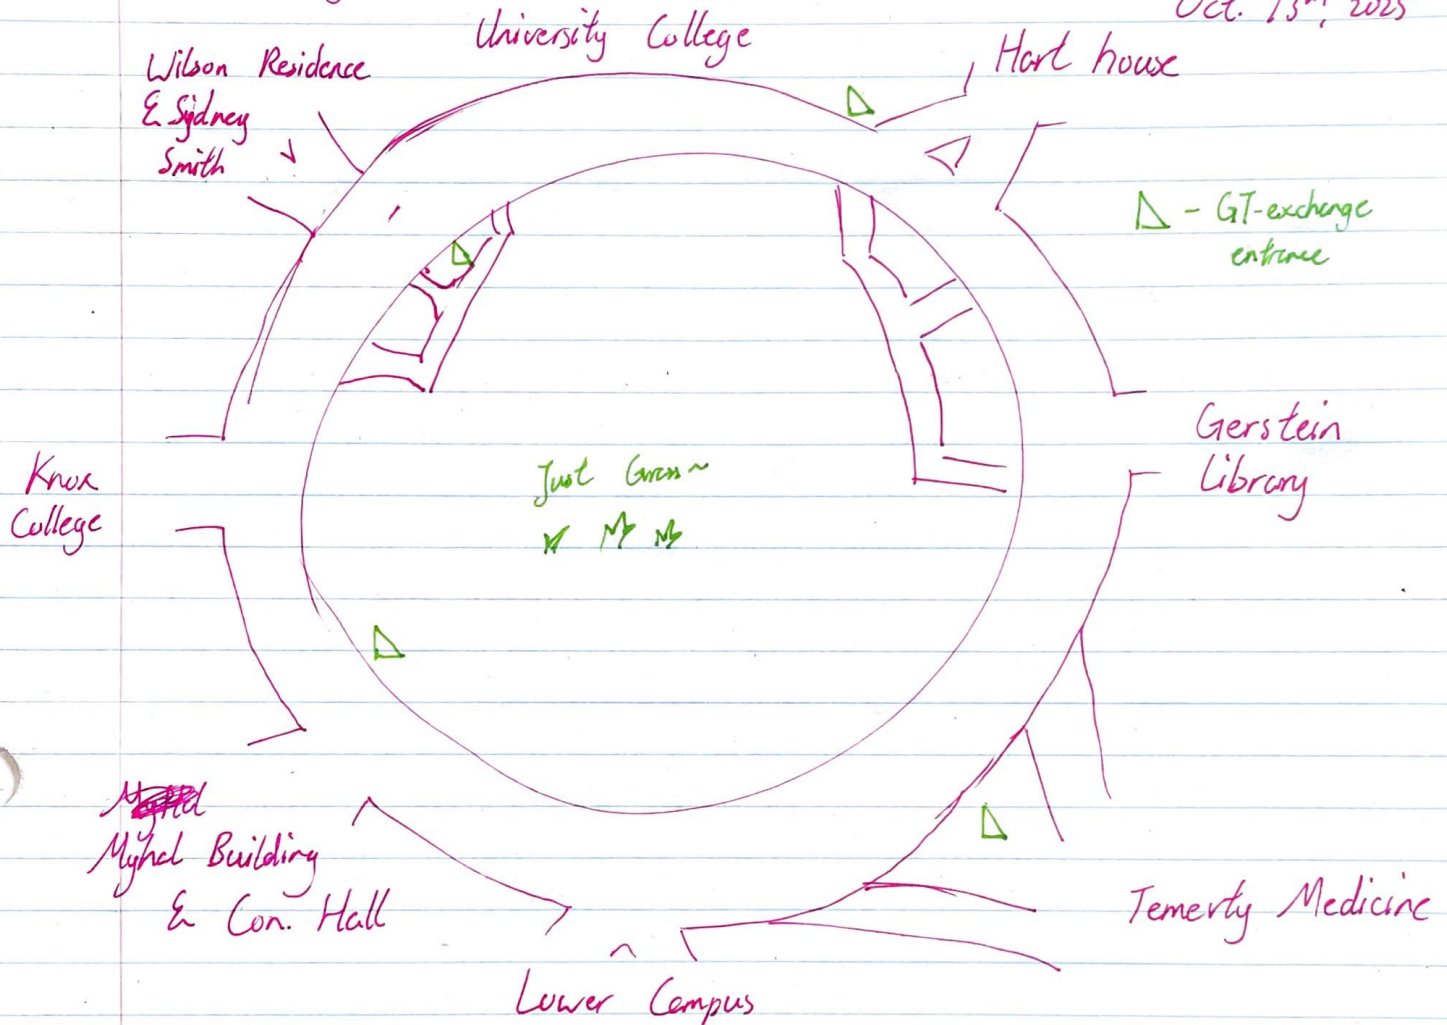 Oct. 13rd, 2025
University College
Hart house
Wilson Residence
& Sydney
Smith
- GT-exchange
entrance
Gerstein
Library
Knox
College
Just Grass~
Myhal Building
& Con. Hall
Temerty Medicine
Lower Campus